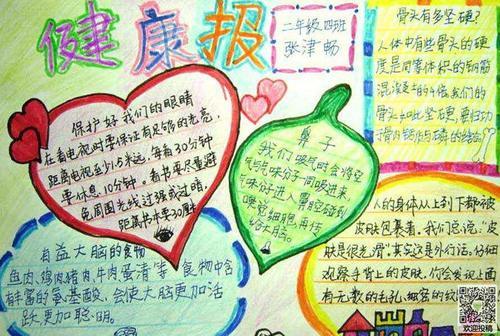 健康报
二年级四班
张津畅
骨头有多坚硬?
人体中有些骨头的硬
度是同等体积的钢筋
混凝土的十倍我们的
骨头如此坚硬,要归功
保护好我们的眼睛
在看电视时要保证有足够的光亮,
距离电视至少5米远,每看30分钟
要休息10分钟。看书要尽量避
免周围光线过强或过暗,
距离书本要30厘米
鼻子
我们吸气时会将空
气与气味分子一同吸进来,
气味分子进入鼻腔碰到
嗅觉细胞再传
给大脑。
有益大脑的食物
鱼肉、鸡肉猪肉、牛肉蛋清等食物中含
丰富的氨基酸,会使大脑更加活
跃更加聪明。
人的身体从上到下都被
皮肤包裹着。我们总说:"皮
肤是很光滑"其实这是外行话。仔细
观察手背上的皮肤,你会发现上面
有无数的毛孔、细密的纹
欢迎投稿